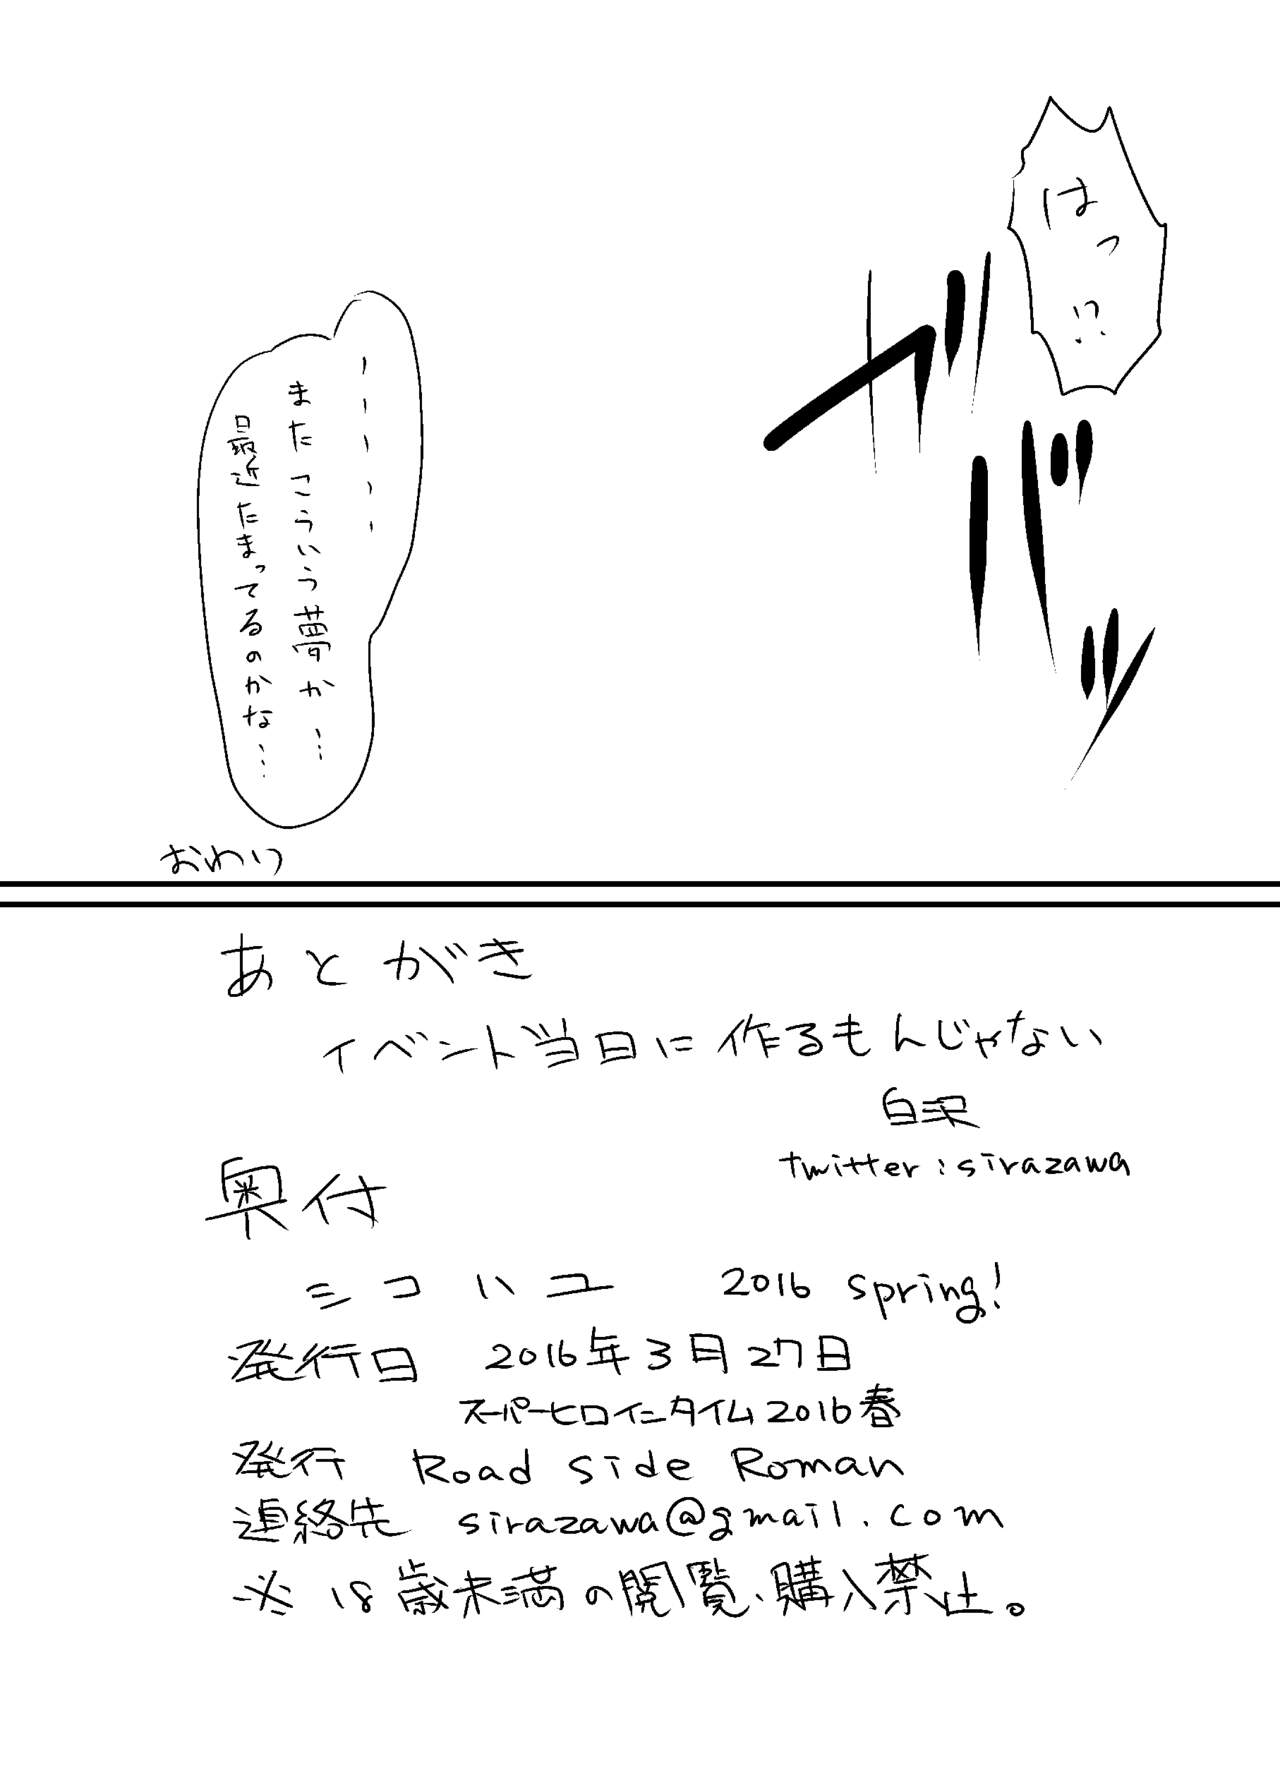 はっ!?
ガバッ
-----
またこういう夢か…
最近たまってるのかな…
おわり
あとがき
イベント当日に作るもんじゃない
白沢
twitter:sirazawa
奥付
シコハユ 2016 spring!
発行日 2016年3月27日
スーパーヒロインタイム2016春
発行 Road side Roman
連絡先 sirazawa@gmail.com
※18歳未満の閲覧、購入禁止。